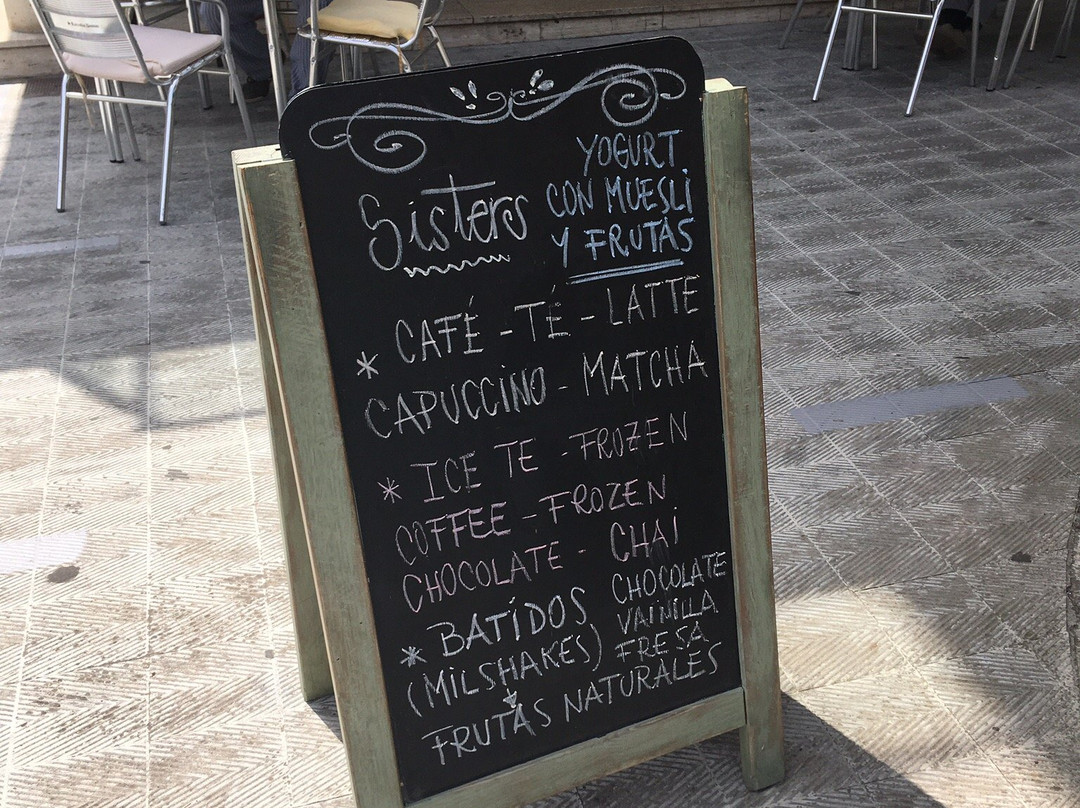 Sisters
YOGURT
CON MUESLI
Y FRUTAS
* CAFÉ - TÉ - LATTE
CAPUCCINO - MATCHA
* ICE TE - FROZEN
COFFEE - FROZEN
CHOCOLATE - CHAI
* BATIDOS
(MILSHAKES)
CHOCOLATE
VAINILLA
FRESA
FRUTAS NATURALES